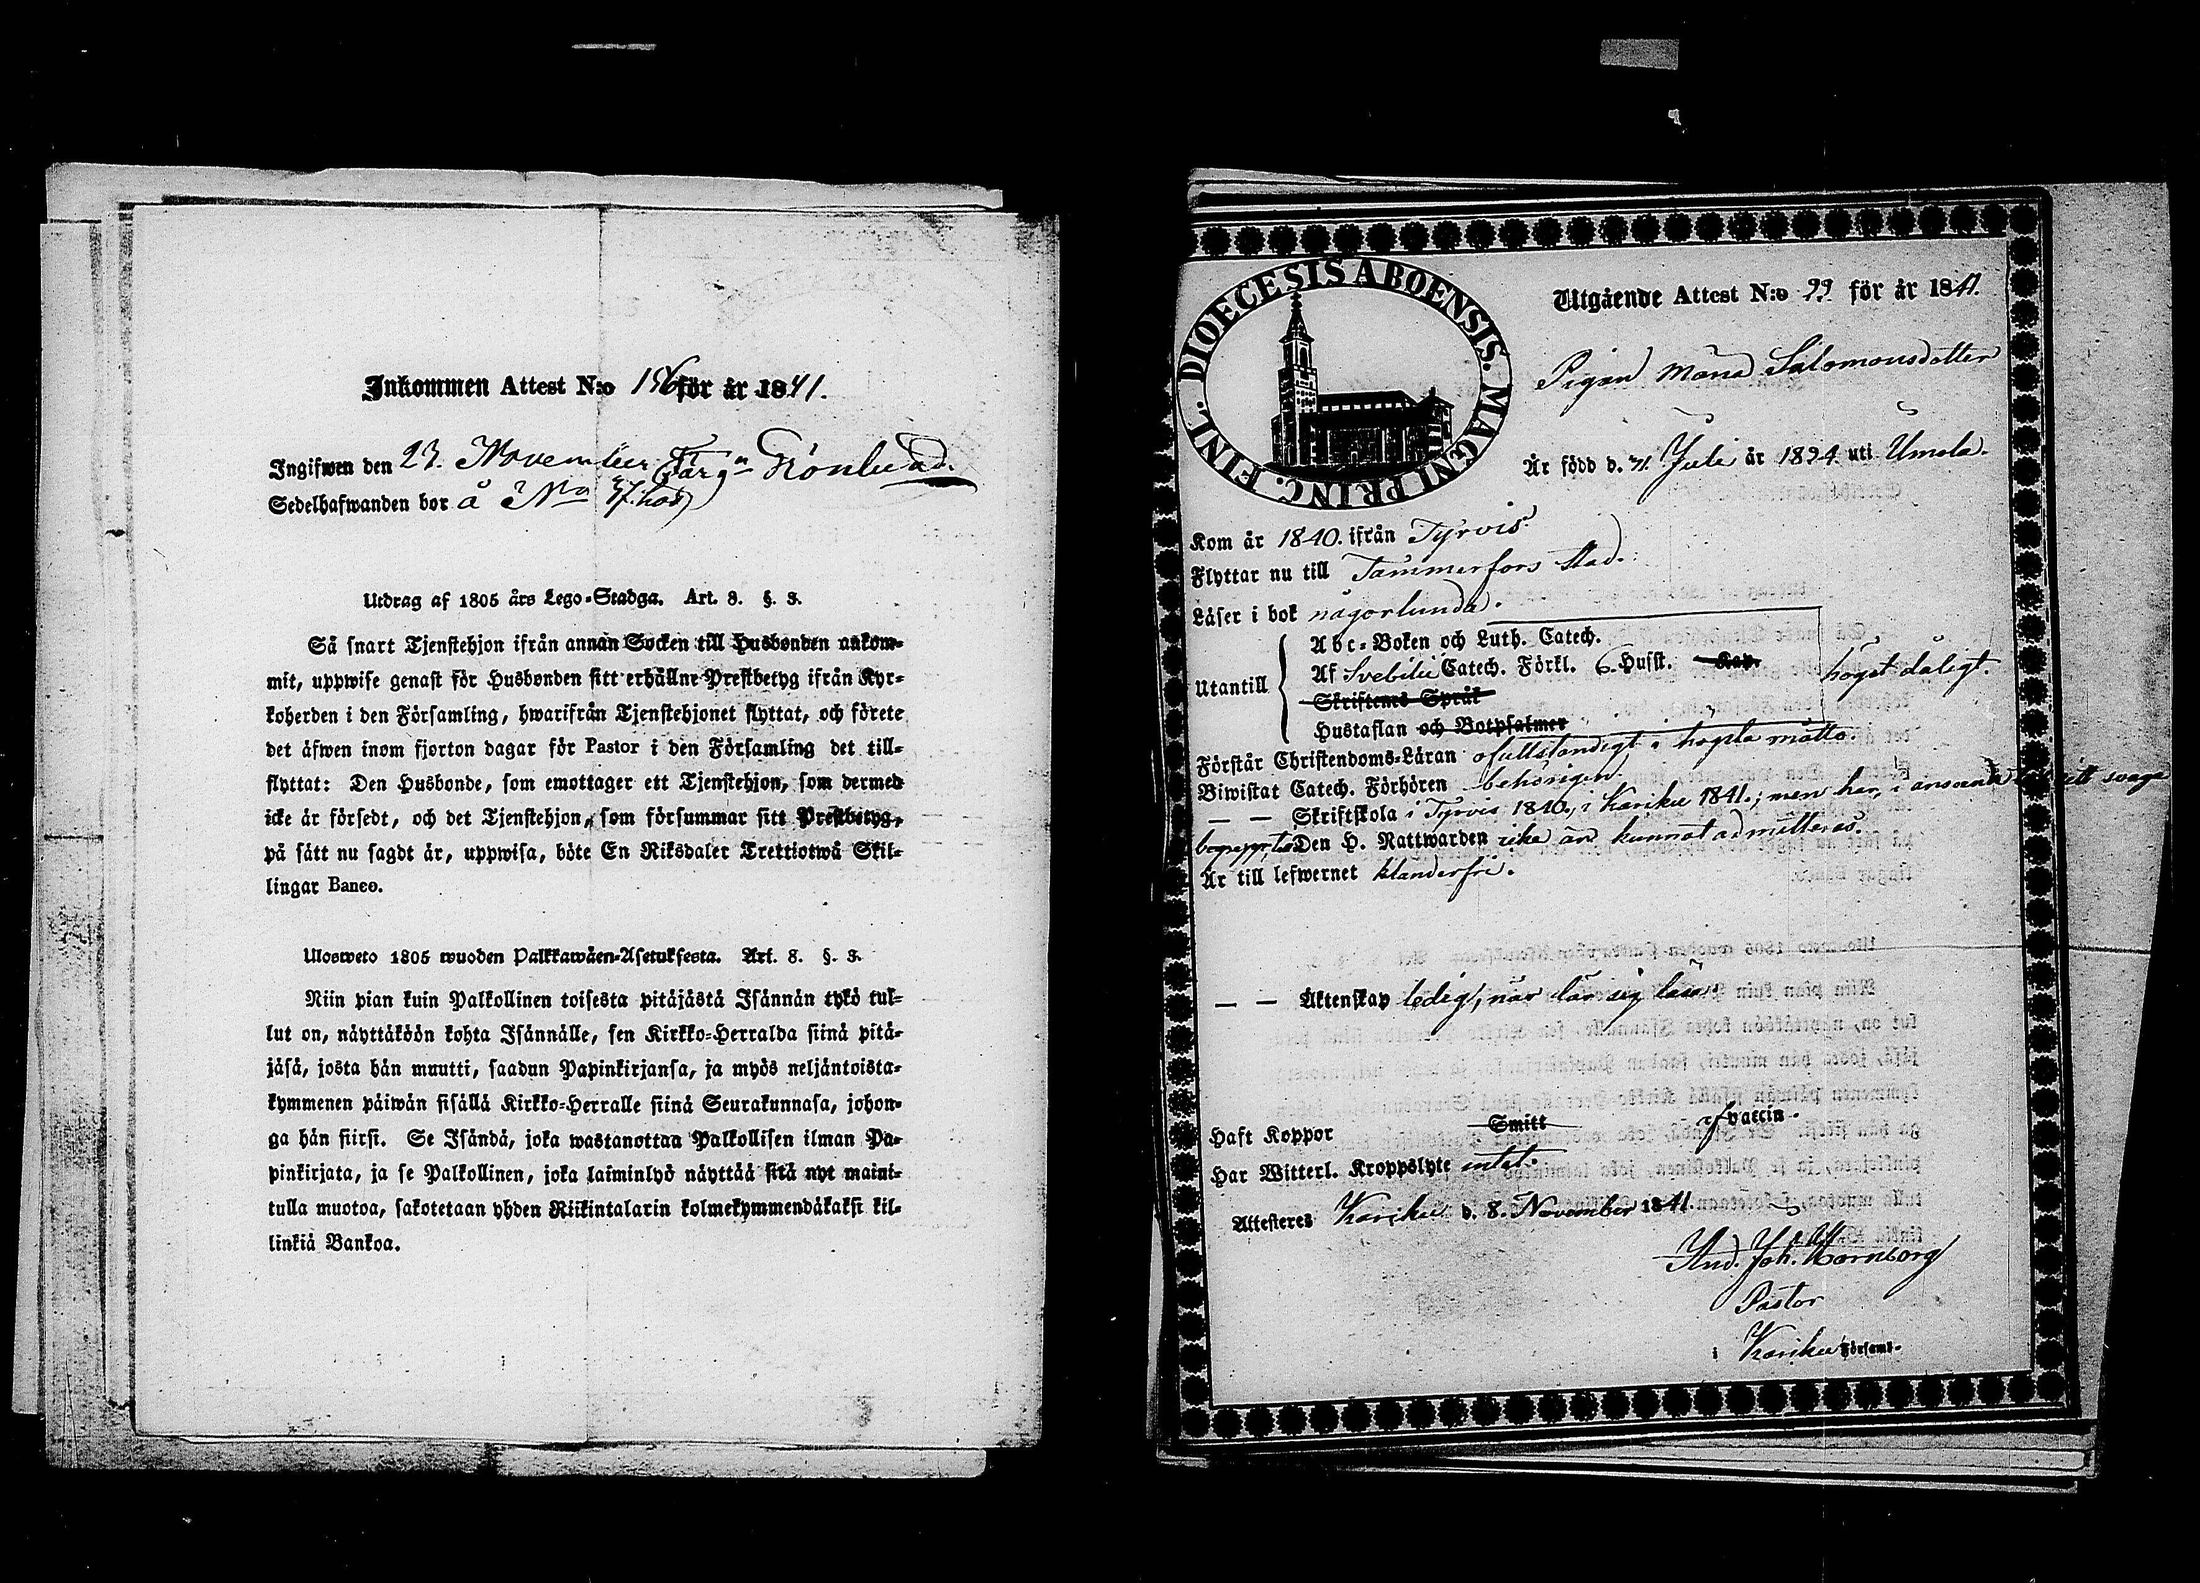 Inkommen Attest N:o 156 för år 1841.
Ingifwen den 23. November Färg Grönlund.
Sedelhafwanden bor å N:o 37. hos
Utdrag af 1805 års Lego-Stadga. Art. 8. §. 3.
Så snart Tjenstehjon ifrån annan Socken till Husbonden ankom-
mit, uppwise genast för Husbonden sitt erhållne Prestbetyg ifrån Kyr-
koherden i den Församling, hwarifrån Tjenstehjonet flyttat, och förete
det äfwen inom fjorton dagar för Pastor i den Församling det till-
flyttat: Den Husbonde, som emottager ett Tjenstehjon, som dermed
icke är försedt, och det Tjenstehjon, som försummar sitt Prestbetyg,
på sätt nu sagdt är, uppwisa, böte En Riksdaler Trettiotwå Skil-
lingar Banco.
Ulosweto 1805 wuoden Palkkawäen-Asetuksesta. Art. 8. §. 3.
Niin pian kuin Palkollinen toisesta pitäjästä Isännän tykö tul-
lut on, näyttäköön kohta Isännälle, sen Kirkko-Herralda siinä pitä-
jäsä, josta hän muutti, saadun Papinkirjansa, ja myös neljäntoista-
kymmenen päiwän sisällä Kirkko-Herralle siinä Seurakunnasa, johon-
ga hän siirsi. Se Isändä, joka wastanottaa Palkollisen ilman Pa-
pinkirjata, ja se Palkollinen, joka laiminlyö näyttää sitä nyt maini-
tulla muotoa, sakotetaan yhden Riikintalarin kolmekymmendäkaksi kil-
linkiä Bankoa.
DIOECESIS ABOENSIS. MAGNI PRINC. FINL.
Utgående Attest N:o 99. för år 1841.
Pigan Maria Salomonsdotter
Är född d. 31. Juli år 1824. uti Umola.
Kom år 1840. ifrån Tyrvis.
Flyttar nu till Tammerfors Stad.
Läser i bok någorlunda.
Utantill
Abc-Boken och Luth. Catech.
Af Svebilii Catech. Förkl. 6. Husst. Kap.
Skriftens Språk
Hustaflan och Botpsalmer
högst dåligt.
Förstår Christendoms-Läran ofullständigt i högsta måtto.
Biwistat Catech. Förhören behörigen.
— — Skriftskola i Tyrvis 1840, i Kariku 1841.; men har, i anseende till sitt svaga
begrepp, till Den H. Nattwarden icke än kunnat admitteras.
Är till lefwernet klanderfri.
— — Äktenskap ledig, när lär sig läsa.
Haft Koppor Smitt vaccin.
Har Witterl. Kroppslyte intet.
Attesteres Kariku d. 8. November 1841.
And. Joh. Hornborg
Pastor
i Kariku Församl.